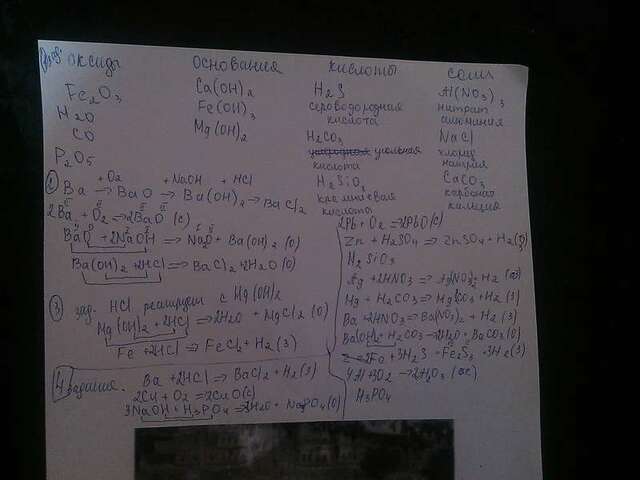 оксиды основания кислоты соли
Fe₂O₃ Ca(OH)₂ H₂S Al(NO₃)₃
H₂O Fe(OH)₃ сероводородная кислота нитрат алюминия
CO Mg(OH)₂ H₂CO₃ NaCl
P₂O₅ угольная кислота хлорид натрия
H₂SiO₃ CaCO₃
кремниевая кислота карбонат кальция
② +O₂ +NaOH +HCl
Ba → BaO → Ba(OH)₂ → BaCl₂
2Ba + O₂ ⇒ 2BaO (с)
BaO + 2NaOH ⇒ Na₂O + Ba(OH)₂ (о)
Ba(OH)₂ + 2HCl ⇒ BaCl₂ + 2H₂O (о)
③ зад. HCl реагирует с Mg(OH)₂
Mg(OH)₂ + 2HCl ⇒ 2H₂O + MgCl₂ (о)
Fe + 2HCl ⇒ FeCl₂ + H₂ (з)
4 задания. Ba + 2HCl ⇒ BaCl₂ + H₂ (з)
2Cu + O₂ ⇒ 2CuO (с)
3NaOH + H₃PO₄ ⇒ 3H₂O + Na₃PO₄ (о)
2Pb + O₂ ⇒ 2PbO (с)
Zn + H₂SO₄ ⇒ ZnSO₄ + H₂ (з)
H₂SiO₃
Ag + 2HNO₃ ⇒
Mg + H₂CO₃ ⇒ MgCO₃ + H₂ (з)
Ba + 2HNO₃ ⇒ Ba(NO₃)₂ + H₂ (з)
Ba(OH)₂ + H₂CO₃ → 2H₂O + BaCO₃ (о)
3H₂S → Fe₂S₃ + 3H₂ (з)
H₃PO₄